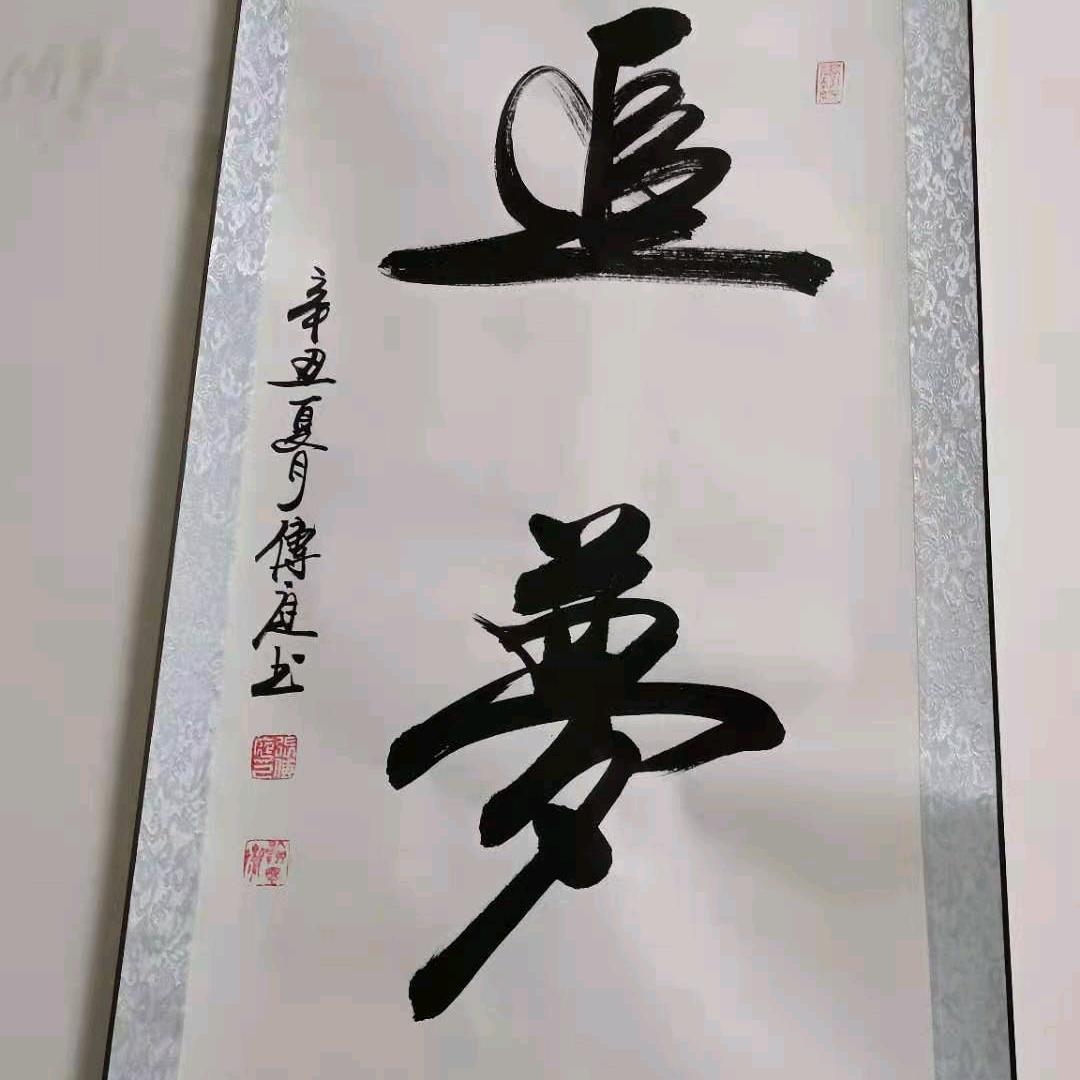 追
夢
辛丑夏月傳庭书